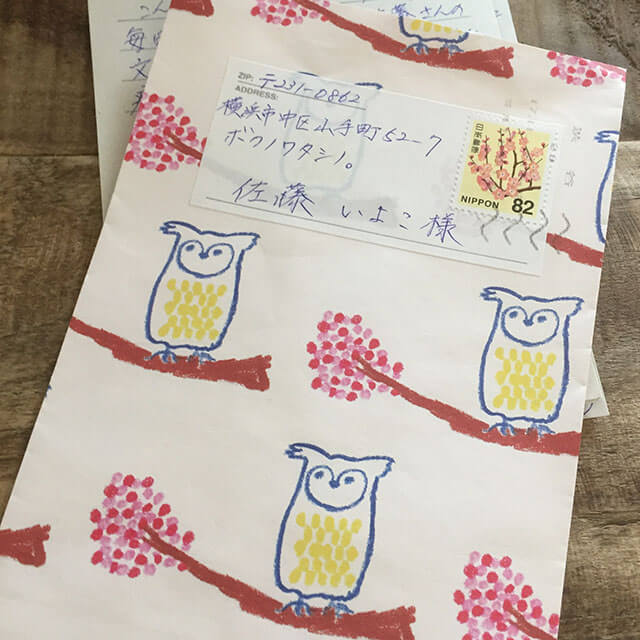 さんの
毎
文
ZIP: 〒231-0862
ADDRESS:
横浜市中区山手町52-7
ボクノワタシノ。
佐藤 いよこ様
日本郵便
NIPPON 82